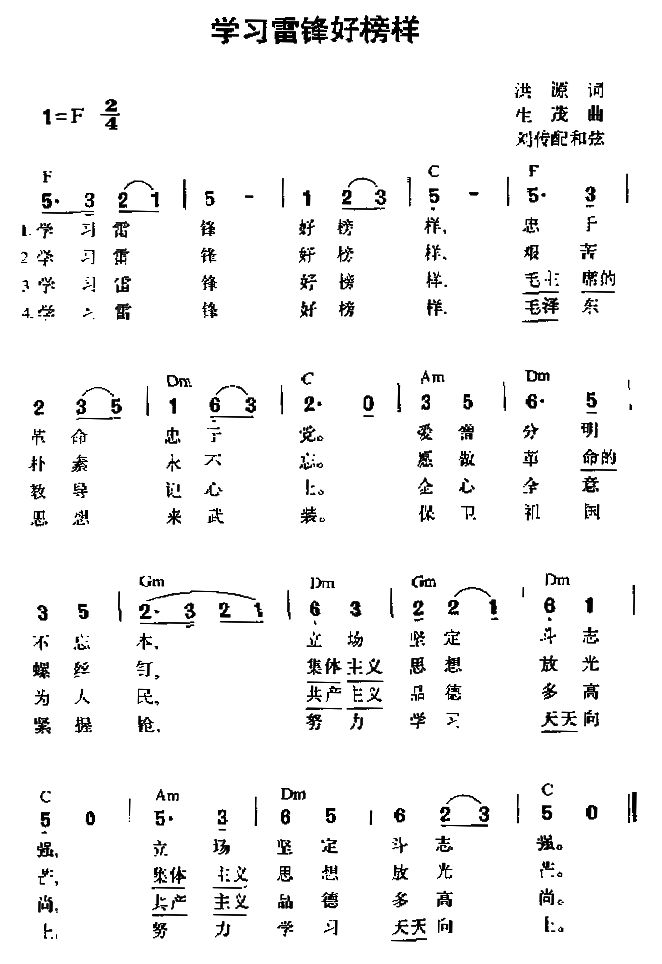 学习雷锋好榜样
洪 源 词
1=F 2/4
生 茂 曲
刘传配和弦
F C F
5· 3 2 1 | 5 - | 1 2 3 | 5 - | 5· 3 |
1.学 习 雷 锋 好 榜 样, 忠 于
2 学 习 雷 锋 好 榜 样、 艰 苦
3 学 习 雷 锋 好 榜 样. 毛主 席的
4.学 习 雷 锋 好 榜 样. 毛泽 东
Dm C Am Dm
2 3 5 | 1 6 3 | 2· 0 | 3 5 | 6· 5 |
革 命 忠 于 党。 爱 憎 分 明
朴 素 永 不 忘。 愿 做 革 命的
教 导 记 心 上。 全 心 全 意
思 想 来 武 装。 保 卫 祖 国
Gm Dm Gm Dm
3 5 | 2· 3 2 1 | 6 3 | 2 2 1 | 6 1 |
不 忘 本, 立 场 坚 定 斗 志
螺 丝 钉, 集体 主义 思 想 放 光
为 人 民, 共产 主义 品 德 多 高
紧 握 枪, 努 力 学 习 天天 向
C Am Dm C
5 0 | 5· 3 | 6 5 | 6 2 3 | 5 0 ‖
强, 立 场 坚 定 斗 志 强。
芒, 集体 主义 思 想 放 光 芒。
尚, 共产 主义 品 德 多 高 尚。
上, 努 力 学 习 天天 向 上。